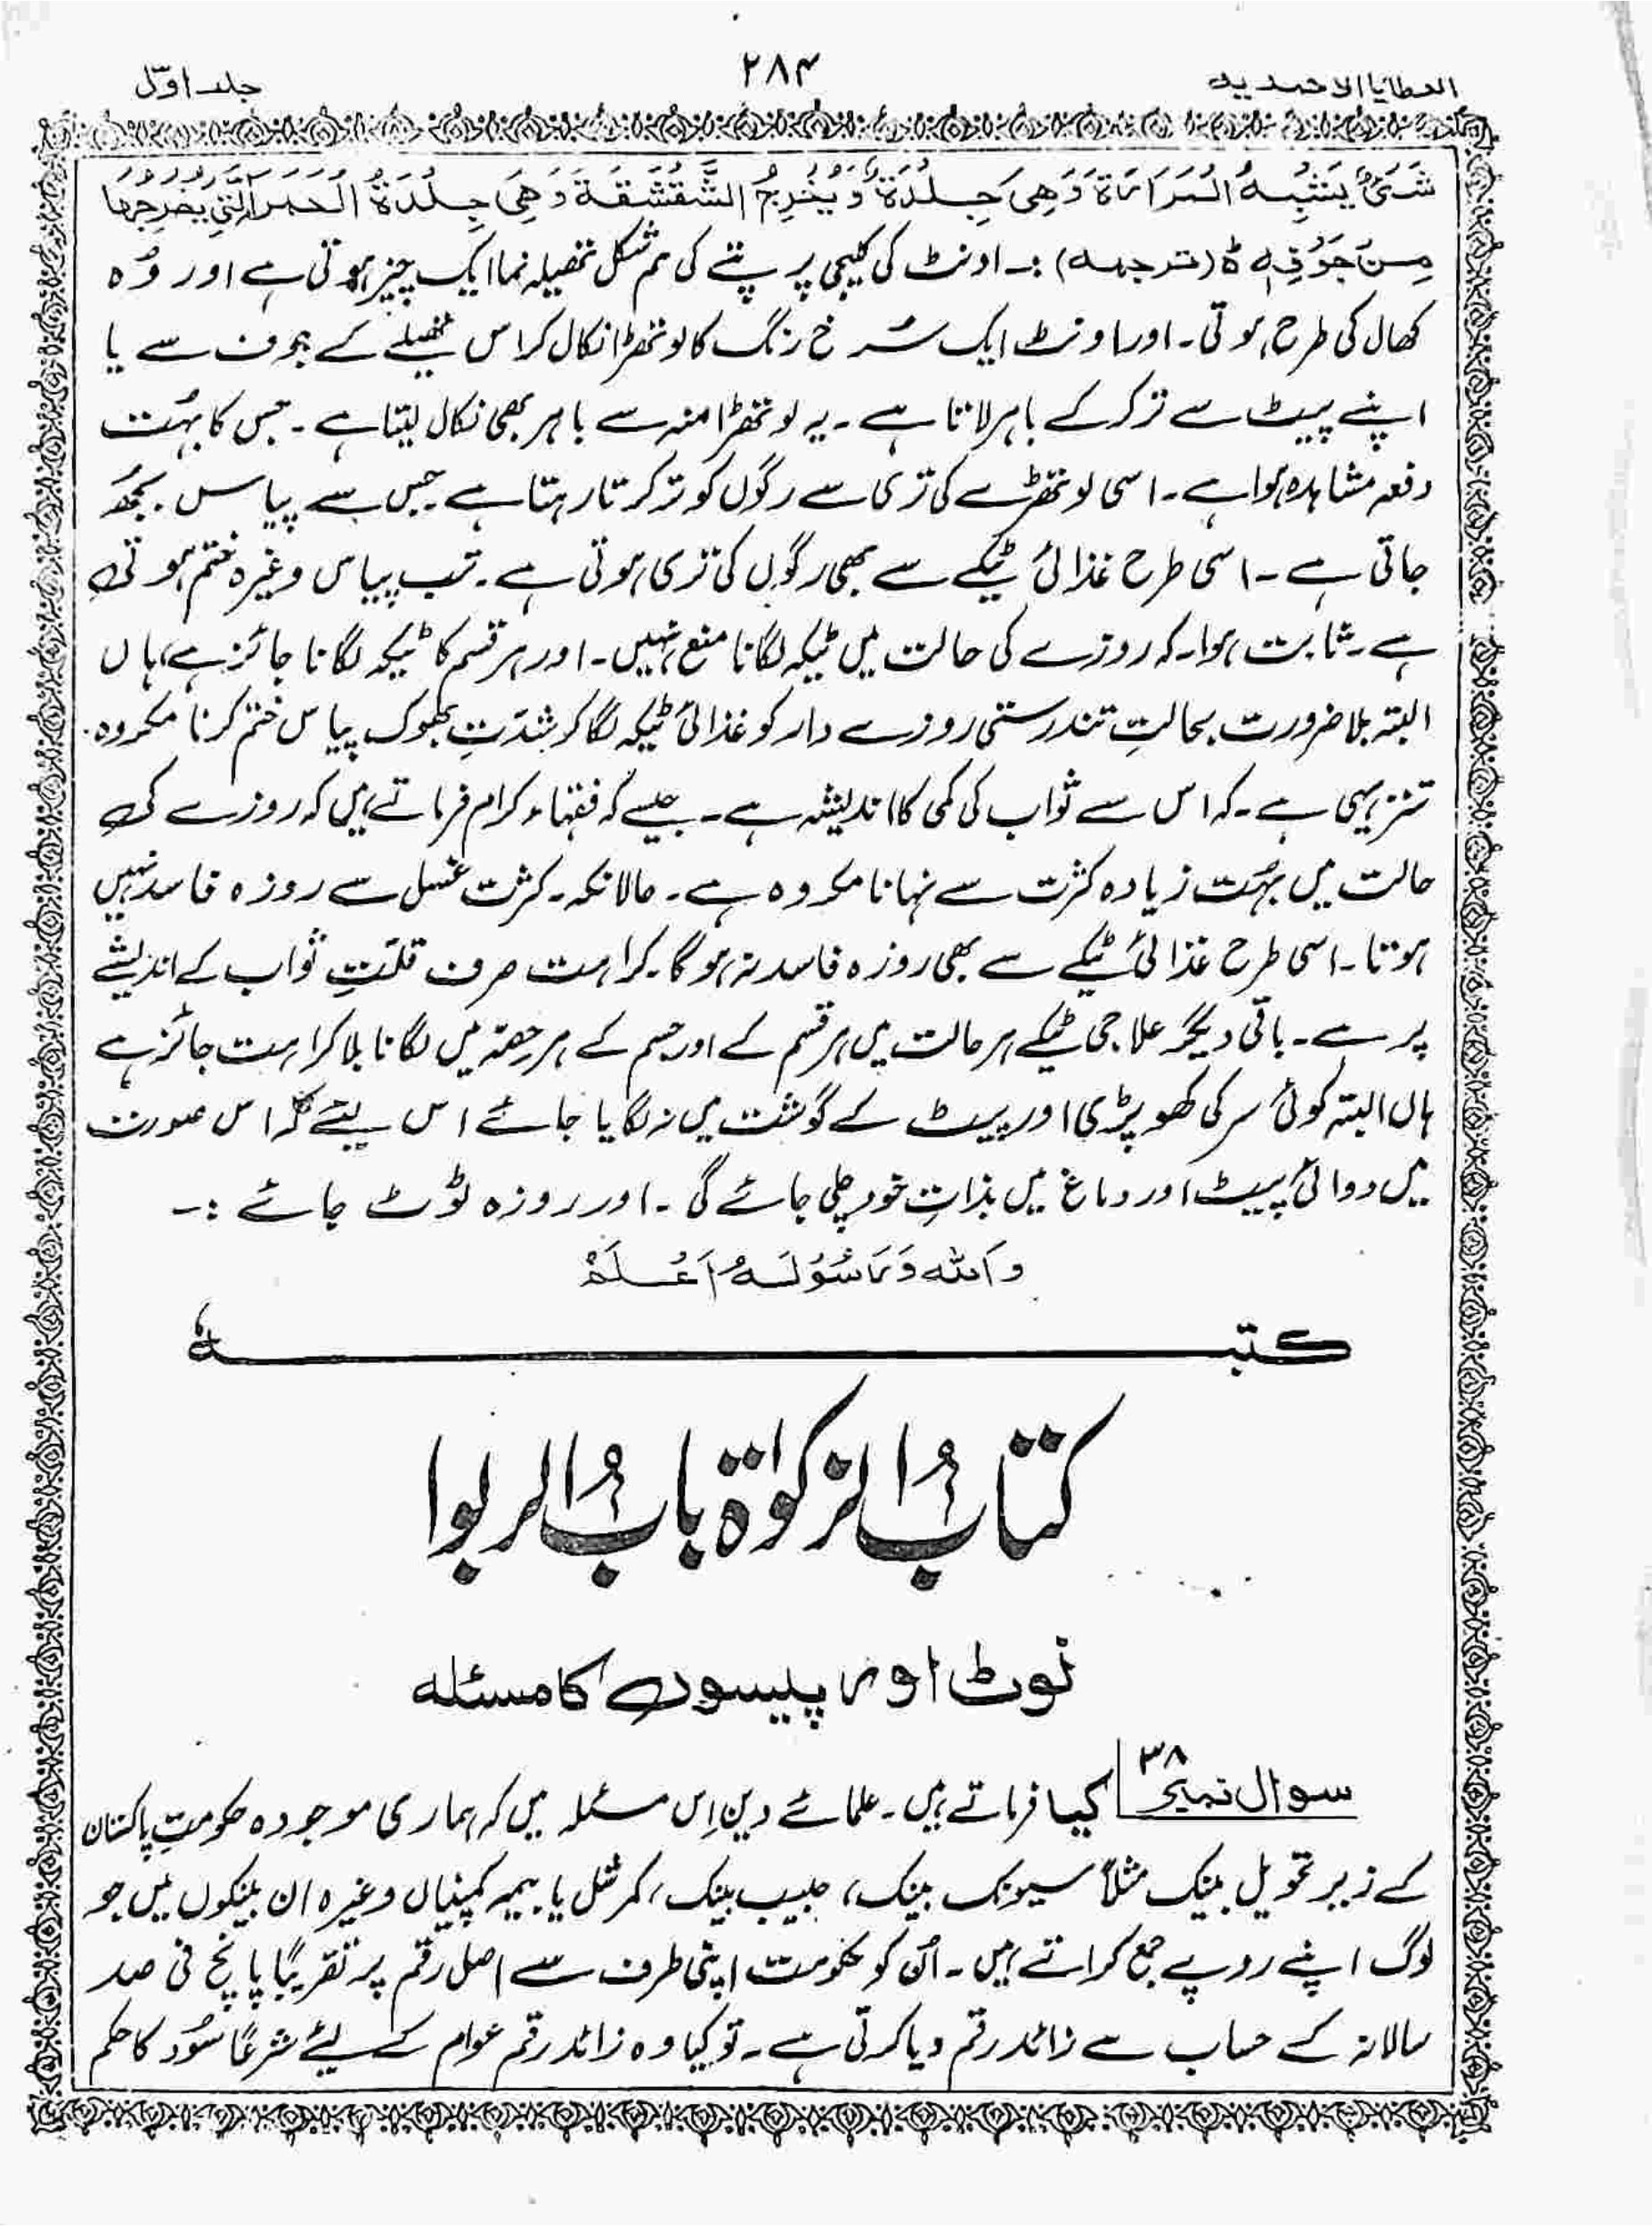 العطایا الاحمدیہ
۲۸۴
جلد اوّل
شَیْءٌ یَشْبِہُ الْمَرَارَۃَ وَھِیَ جِلْدَۃٌ وَیُخْرِجُ الشَّقْشَقَۃَ وَھِیَ جِلْدَۃُ الْحَمْرَ الَّتِیْ یُخْرِجُھَا
مِنْ جَوْفِہٖ ط (ترجمہ) :۔ اونٹ کی کلیجی پر پتے کی ہم شکل تھیلہ نما ایک چیز ہوتی ہے اور وُہ
کھال کی طرح ہوتی۔ اور اونٹ ایک سُرخ رنگ کا لوتھڑا نکال کر اس تھیلے کے جوف سے یا
اپنے پیٹ سے تر کر کے باہر لاتا ہے۔ یہ لوتھڑا منہ سے باہر بھی نکال لیتا ہے۔ جس کا بہُت
دفعہ مشاہدہ ہوا ہے۔ اسی لوتھڑے کی تری سے رگوں کو تر کرتا رہتا ہے جس سے پیاس بجھ
جاتی ہے۔ اسی طرح غذائی ٹیکے سے بھی رگوں کی تری ہوتی ہے۔ تب پیاس وغیرہ ختم ہوتی
ہے۔ ثابت ہوا۔ کہ روزے کی حالت میں ٹیکہ لگانا منع نہیں۔ اور ہر قسم کا ٹیکہ لگانا جائز ہے، ہاں
البتہ بلا ضرورت بحالتِ تندرستی روزے دار کو غذائی ٹیکہ لگا کر شدّتِ بھوک پیاس ختم کرنا مکروہ
تنزیہی ہے۔ کہ اس سے ثواب کی کمی کا اندیشہ ہے۔ جیسے کہ فقہاء کرام فرماتے ہیں کہ روزے کی
حالت میں بہُت زیادہ کثرت سے نہانا مکروہ ہے۔ حالانکہ۔ کثرت غسل سے روزہ فاسد نہیں
ہوتا۔ اسی طرح غذائی ٹیکے سے بھی روزہ فاسد نہ ہو گا۔ کراہت صرف قلّتِ ثواب کے اندیشے
پر ہے۔ باقی دیگر علاجی ٹیکے ہر حالت میں ہر قسم کے اور جسم کے ہر حصّہ میں لگانا بلا کراہت جائز ہے
ہاں البتہ کوئی سر کی کھوپڑی اور پیٹ کے گوشت میں نہ لگایا جائے اس لیئے کہ اس صورت
میں دوائی پیٹ اور دماغ میں بذاتِ خود چلی جائے گی۔ اور روزہ ٹوٹ جائے :۔
وَاللہ وَرَسُوْلَہُ اَعْلَمْ
کتبہ
کتابُ الزکوٰۃ بابُ الربوا
نوٹ اور پیسوں کا مسئلہ
سوال نمبر ۳۸ کیا فرماتے ہیں۔ علمائے دین اِس مسئلہ میں کہ ہماری موجودہ حکومتِ پاکستان
کے زیر تحویل بینک مثلاً سیونک بینک، حبیب بینک، کمرشل یا بیمہ کمپنیاں وغیرہ ان بینکوں میں جو
لوگ اپنے روپے جمع کراتے ہیں۔ اُن کو حکومت اپنی طرف سے اصل رقم پر تقریباً پانچ فی صد
سالانہ کے حساب سے زائد رقم دیا کرتی ہے۔ تو کیا وہ زائد رقم عوام کے لیئے شرعًا سُود کا حکم